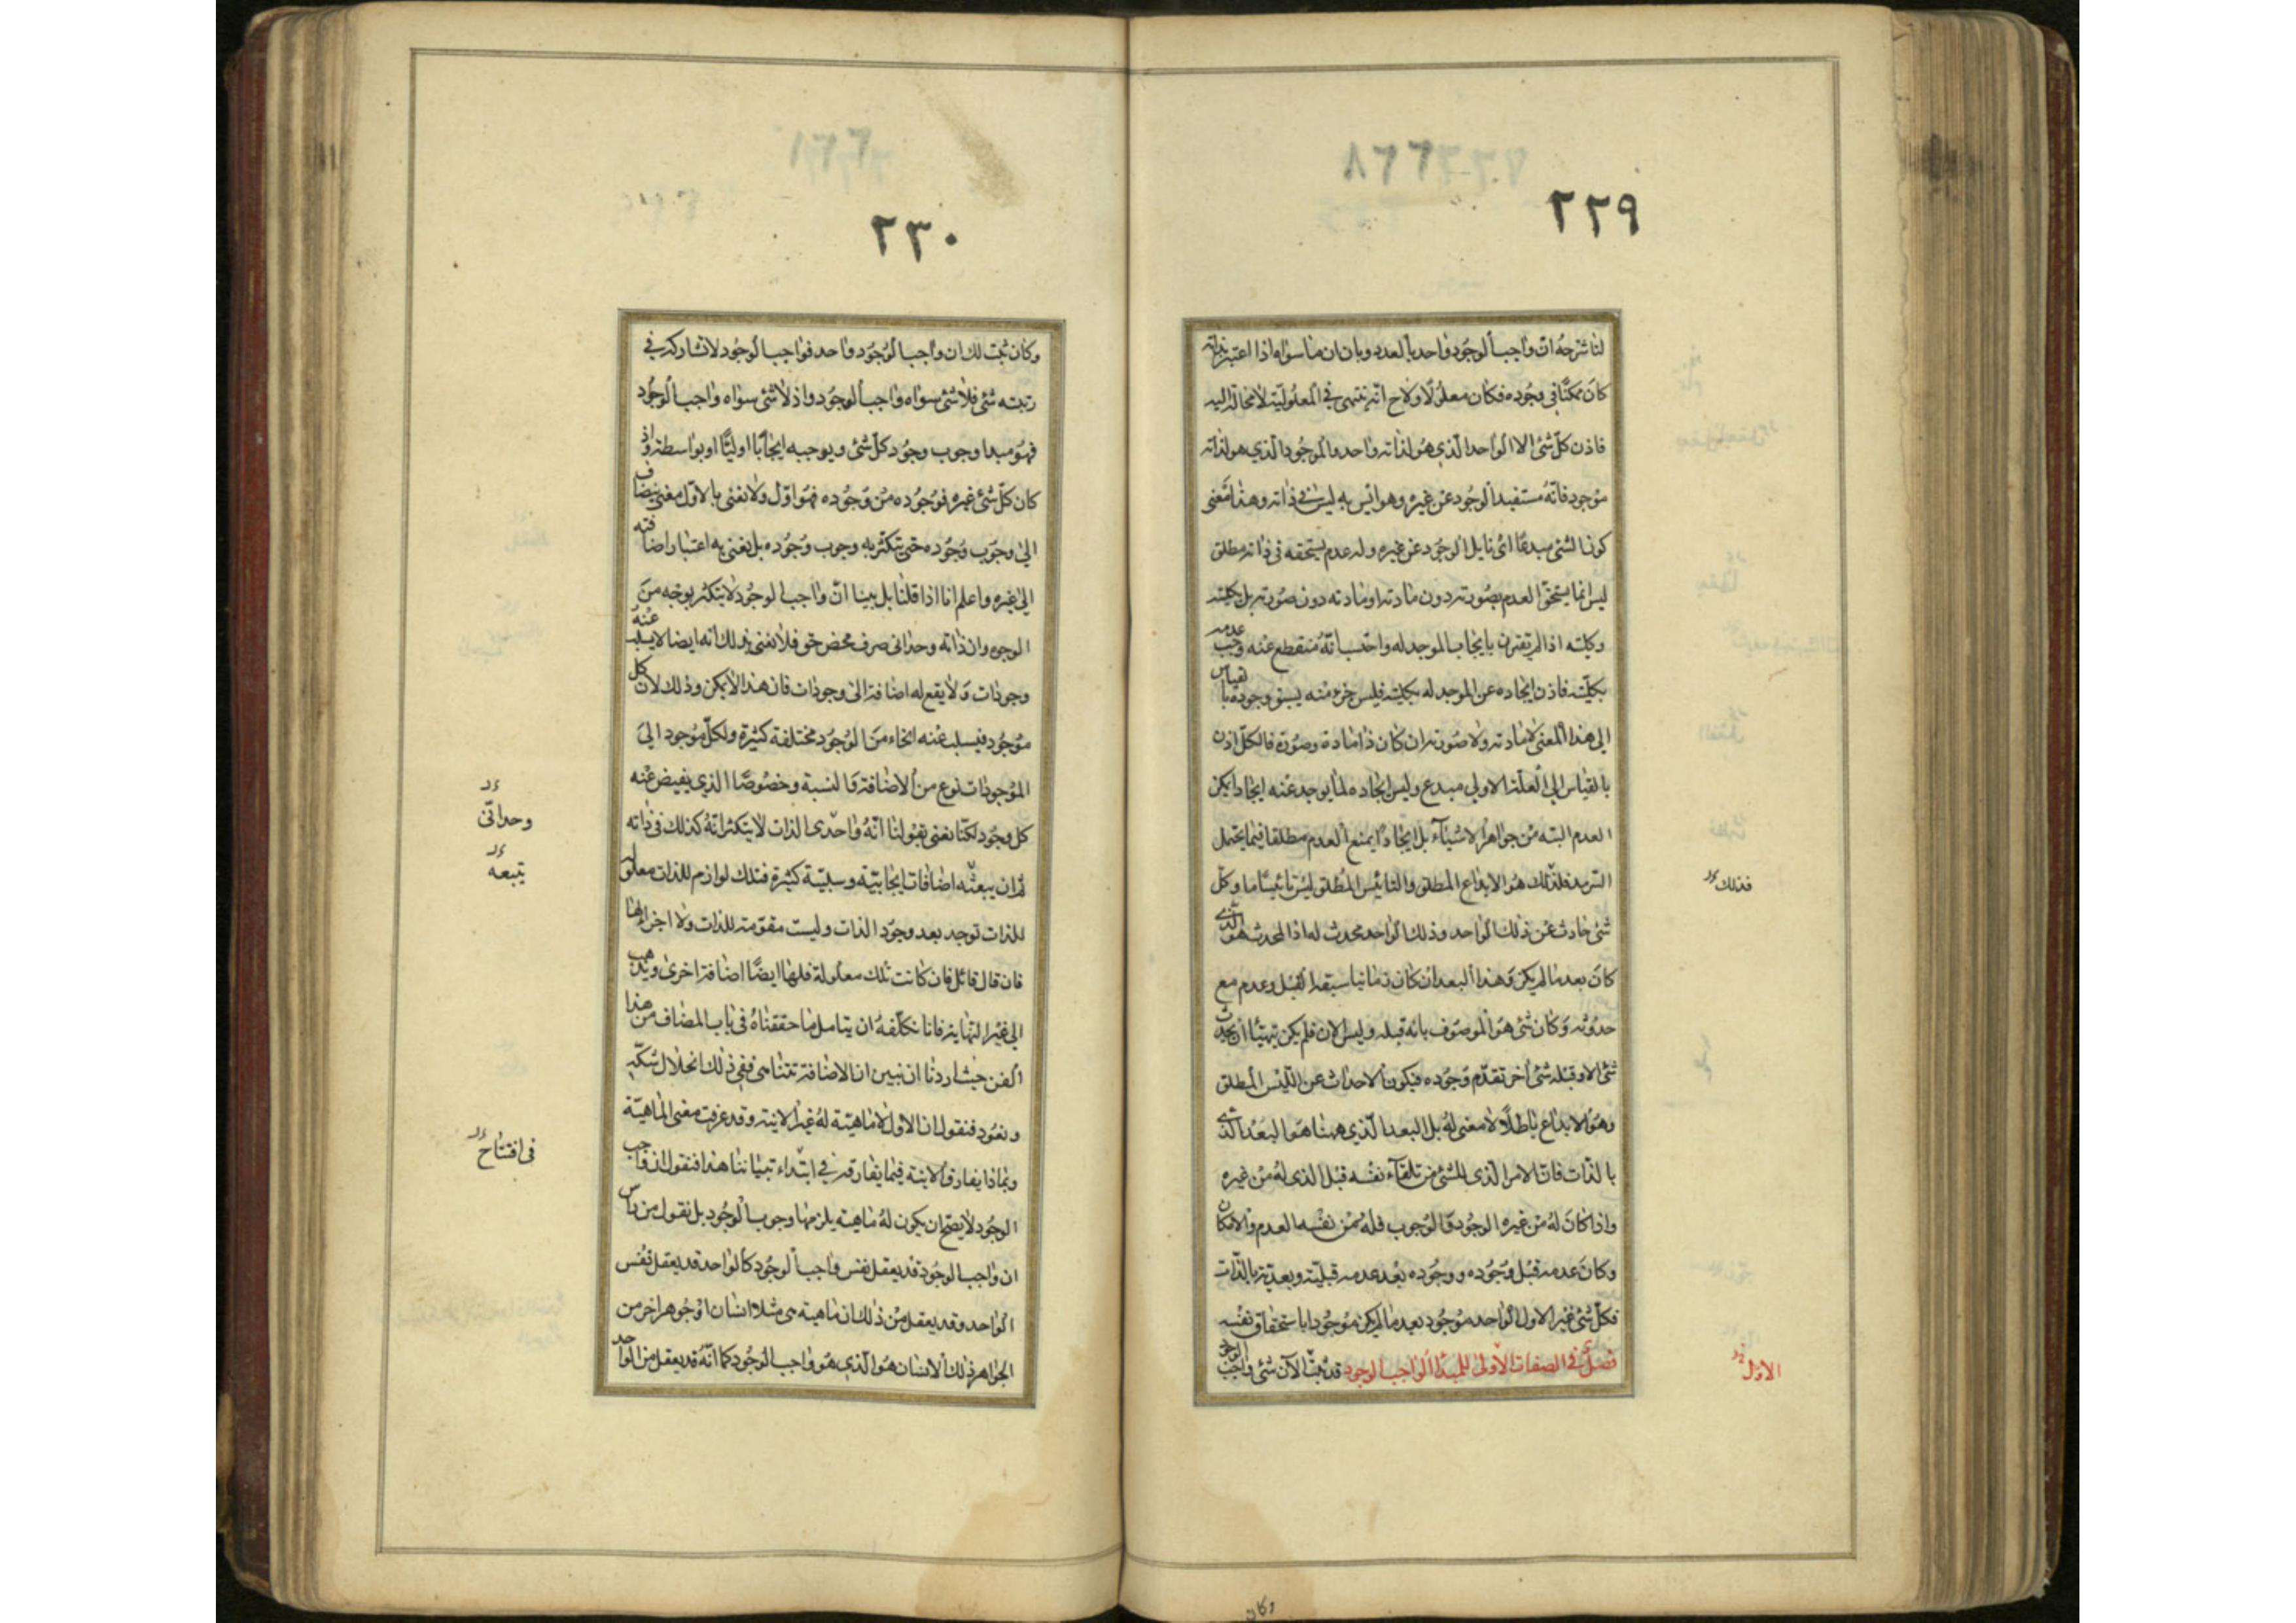 ٢٢٩
لنا شرحه ان واجب الوجود واحد بالعدد وبان ان ما سواه اذا اعتبر بذاته
كان ممكنا فى وجوده فكان معلولا ولاح انه ينتهى فى المعلولية لا محالة اليه
فاذن كل شئ الا الواحد الذى هو لذاته واحد والموجود الذى هو لذاته
موجود فانه مستفيد الوجود عن غيره وهو ايس به ليس فى ذاته وهذا معنى
كون الشئ مبدعا اى نايل الوجود عن غيره وله عدم يستحقه فى ذاته مطلق
ليس انما يستحق العدم بصورته دون مادته او مادته دون صورته بل بكليته
وكليته اذا لم تقترن بايجاب الموجد له واحتسب انه منقطع عنه وجب عدمه
بكليته فاذن ايجاده عن الموجد له بكليته فليس جزء منه يسبق وجوده بالقياس
الى هذا المعنى لا مادته ولا صورته ان كان ذا مادة وصورة فالكل اذن
بالقياس الى العلة الاولى مبدع وليس ايجاده لما يوجد عنه ايجادا يمكن
العدم البته من جواهر الاشياء بل ايجادا يمنع العدم مطلقا فيما يحتمل
السرمد فذلك هو الابداع المطلق والتاييس المطلق ليس تاييسا ما وكل
فذلك
شئ حادث عن ذلك الواحد وذلك الواحد محدث له اذ المحدث هو الذى
كان بعد ما لم يكن وهذا البعد ان كان زمانيا سبقه القبل وعدم مع
حدوثه وكان شئ هو الموصوف بانه قبله وليس الان فلم يكن يتهيأ ان يحدث
شئ الا وقبله شئ اخر تقدم وجوده فيكون الاحداث عن الليس المطلق
وهو الابداع باطلا لا معنى له بل البعد الذى ههنا هو البعد الذى
بالذات فان الامر الذى للشئ من تلقاء نفسه قبل الذى له من غيره
واذا كان له من غيره الوجود والوجوب فله من نفسه العدم والامكان
وكان عدمه قبل وجوده ووجوده بعد عدمه قبلية وبعدية بالذات
فكل شئ غير الاول الواحد موجود بعد ما لم يكن موجودا باستحقاق نفسه
فصل فى الصفات الاولى للمبدا الواجب الوجود قد ثبت الآن شئ واجب الوجود
الاول
وكان
٢٣٠
وكان ثبت لك ان واجب الوجود واحد فواجب الوجود لا تشاركه فى
رتبته شئ فلا شئ سواه واجب الوجود واذ لا شئ سواه واجب الوجود
فهو مبدا وجوب وجود كل شئ ويوجبه ايجابا اوليا او بواسطة واذ
كان كل شئ غيره فوجوده من وجوده فهو اول ولا نعنى بالاول معنى ينضاف
الى وجوب وجوده حتى يتكثر به وجوب وجوده بل نعنى به اعتبار اضافته
الى غيره واعلم انا اذا قلنا بل بينا ان واجب الوجود لا يتكثر بوجه من
الوجوه وان ذاته وحدانى صرف محض حق فلا نعنى بذلك انه ايضا لا يسلب عنه
وجودات ولا يقع له اضافة الى وجودات فان هذا لا يمكن وذلك لان كل
موجود فيسلب عنه انحاء من الوجود مختلفة كثيرة ولكل موجود الى
الموجودات نوع من الاضافة والنسبة وخصوصا الذى يفيض عنه
كل وجود لكنا نعنى بقولنا انه واحدى الذات لا يتكثر انه كذلك فى ذاته
وحدانى
ثم ان يبعثه اضافات ايجابية وسلبية كثيرة فتلك لوازم للذات معلولة
يتبعه
للذات توجد بعد وجود الذات وليست مقومة للذات ولا اجزاء لها
فان قال قائل فان كانت تلك معلولة فلها ايضا اضافة اخرى ويذهب
الى غير النهاية فانا نكلفه ان يتامل ما حققناه فى باب المضاف من هذا
الفن حيث اردنا ان نبين ان الاضافة تتناهى ففى ذلك انحلال شكه
ونعود فنقول ان الاول لا ماهية له غير الانية وقد عرفت معنى الماهية
وبماذا يفارق الانية فيما يفارقه فى ابتداء تبياننا هذا فنقول ان واجب
فى افتتاح
الوجود لا يصح ان يكون له ماهية يلزمها وجوب الوجود بل نقول من راس
ان واجب الوجود قد يعقل نفس واجب الوجود كالواحد قد يعقل نفس
الواحد وقد يعقل من ذلك ان ماهيته هى مثلا انسان او جوهر اخر من
الجواهر ذلك الانسان هو الذى هو واجب الوجود كما انه قد يعقل من الواحد